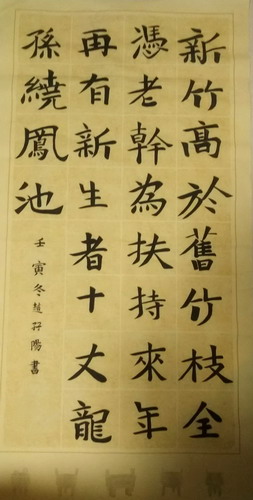 新竹高於舊竹枝全
憑老幹為扶持來年
再有新生者十丈龍
孫繞鳳池
壬寅冬陽書